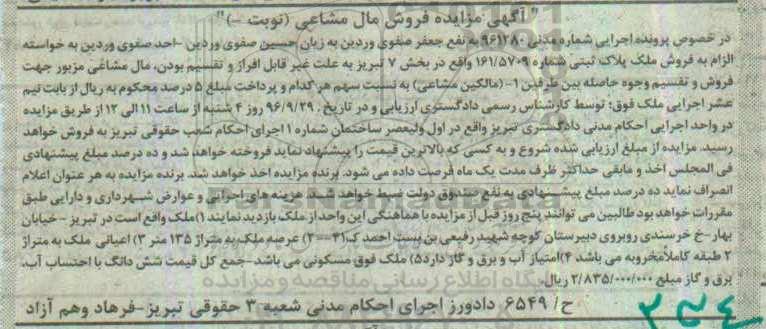 " آگهی مزایده فروش مال مشاعی (نوبت -) "
در خصوص پرونده اجرایی شماره مدنی ۹۶۱۲۸۰ به نفع جعفر صفوی وردین به زیان حسین صفوی وردین -احد صفوی وردین به خواسته
الزام به فروش ملک پلاک ثبتی شماره ۱۶۱/۵۷۰۹ واقع در بخش ۷ تبریز به علت غیر قابل افراز و تقسیم بودن، مال مشاعی مزبور جهت
فروش و تقسیم وجوه حاصله بین طرفین ۱- (مالکین مشاعی) به نسبت سهم هر کدام و پرداخت مبلغ ۵ درصد محکوم به ریال از بابت نیم
عشر اجرایی ملک فوق؛ توسط کارشناس رسمی دادگستری ارزیابی و در تاریخ ۹۶/۹/۲۹. روز ۴ شنبه از ساعت ۱۱ الی ۱۲ از طریق مزایده
در واحد اجرایی احکام مدنی دادگستری تبریز واقع در اول ولیعصر ساختمان شماره ۱ اجرای احکام شعب حقوقی تبریز به فروش خواهد
رسید. مزایده از مبلغ ارزیابی شده شروع و به کسی که بالاترین قیمت را پیشنهاد نماید فروخته خواهد شد و ده درصد مبلغ پیشنهادی
فی المجلس اخذ و مابقی حداکثر ظرف مدت یک ماه فرصت داده می شود. برنده مزایده اخذ خواهد شد. برنده مزایده به هر عنوان اعلام
انصراف نماید ده درصد مبلغ پیشنهادی به نفع صندوق دولت ضبط خواهد شد. هزینه های اجرائی و عوارض شهرداری و دارایی طبق
مقررات خواهد بود طالبین می توانند پنج روز قبل از مزایده با هماهنگی این واحد از ملک بازدید نمایند ۱)ملک واقع است در تبریز - خیابان
بهار-خ خرسندی روبروی دبیرستان کوچه شهید رفیعی بن بست احمد ک ۲) عرصه ملک به متراژ ۱۳۵ متر ۳) اعیانی ملک به متراژ
۲ طبقه کاملاً مخروبه می باشد ۴)امتیاز آب و برق و گاز دارد ۵) ملک فوق مسکونی می باشد-جمع کل قیمت شش دانگ با احتساب آب،
برق و گاز مبلغ ۲/۸۳۵/۰۰۰/۰۰۰ ریال.
ح/ ۶۵۴۹ دادورز اجرای احکام مدنی شعبه ۳ حقوقی تبریز-فرهاد وهم آزاد
۳۳۴